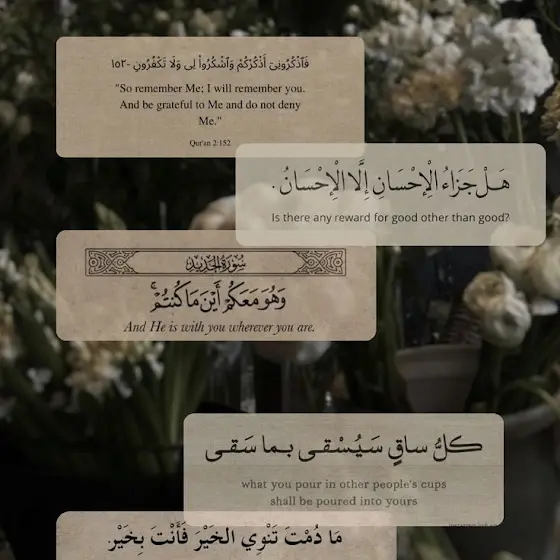 فَاذْكُرُونِيٓ أَذْكُرْكُمْ وَاشْكُرُوا۟ لِى وَلَا تَكْفُرُونِ -١٥٢
"So remember Me; I will remember you.
And be grateful to Me and do not deny
Me."
Qur'an 2:152
هَلْ جَزَاءُ الْإِحْسَانِ إِلَّا الْإِحْسَانُ .
Is there any reward for good other than good?
سُورَةُ الْحَدِيدِ
وَهُوَ مَعَكُمْ أَيْنَ مَا كُنتُمْ ۚ
And He is with you wherever you are.
كلُّ ساقٍ سَيُسْقى بـما سَقـى
what you pour in other people's cups
shall be poured into yours
مَا دُمْتَ تَنْوِي الخَيْرَ فَأَنْتَ بِخَيْرٍ.